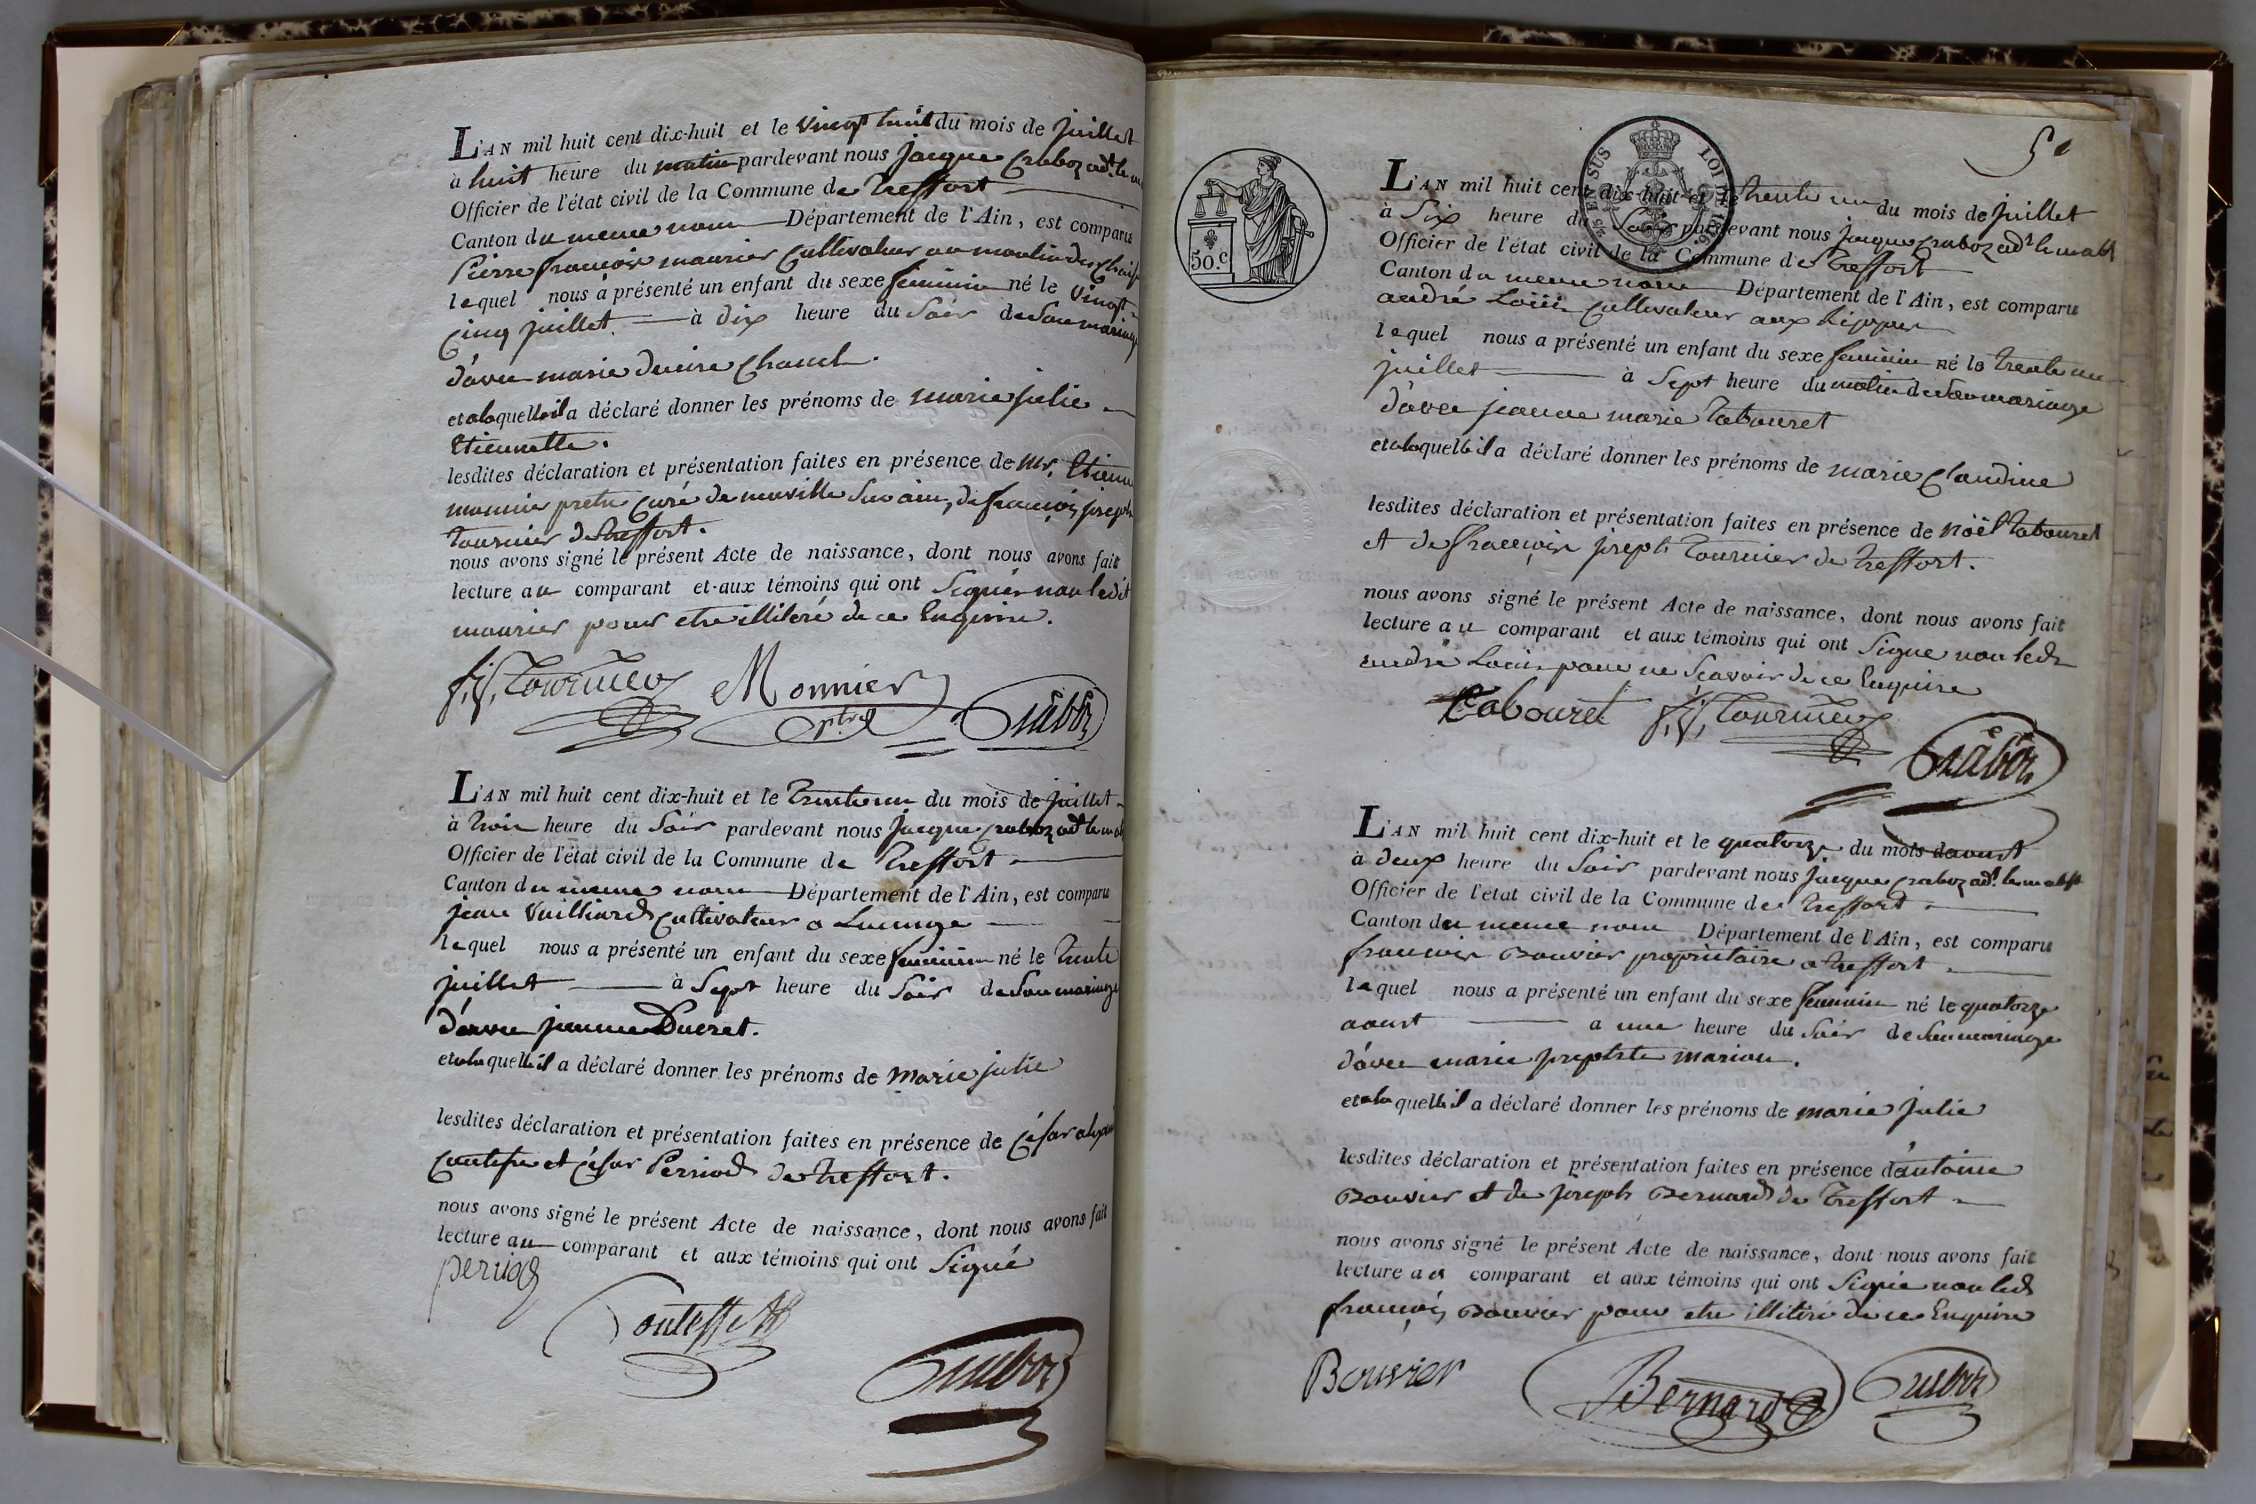 L'AN mil huit cent dix-huit et le vingt huit du mois de juillet
à huit heure du matin pardevant nous jacque Craboz adt. le
Officier de l'état civil de la Commune de treffort
Canton du meme nom Département de l'Ain, est comparu
Pierre françois maurier Cultivateur au moulin des
lequel nous a présenté un enfant du sexe feminin né le vingt
Cinq juillet à dix heure du Soir de Son mariage
d'avec marie Chanel
et a laquelle il a déclaré donner les prénoms de marie julie
Etiennette.
lesdites déclaration et présentation faites en présence de Mr. Etienne
monnier pretre Curé de Sur ain, de françois joseph
tournier de treffort.
nous avons signé le présent Acte de naissance, dont nous avons fait
lecture au comparant et aux témoins qui ont Signés non le dit
maurier pour etre illitéré de ce Enquérie.
f. j. tournier Monnier Crabôz
ptre
L'AN mil huit cent dix-huit et le trente un du mois de juillet
à trois heure du Soir pardevant nous jacque Craboz adt. le
Officier de l'état civil de la Commune de treffort
Canton du meme nom Département de l'Ain, est comparu
jean Vuilliard Cultivateur a
lequel nous a présenté un enfant du sexe feminin né le trente
juillet à Sept heure du Soir de Son mariage
d'avec jeanne Ducret.
et a laquelle il a déclaré donner les prénoms de marie julie
lesdites déclaration et présentation faites en présence de César
Contesse et César Perriod de treffort.
nous avons signé le présent Acte de naissance, dont nous avons fait
lecture au comparant et aux témoins qui ont Signé
perriod
Contesse
Craboz
50.c
2/5 EN SUS LOI DE 1816.
L'AN mil huit cent dix-huit et le trente un du mois de juillet
à Six heure du Soir pardevant nous jacque Craboz adt. le
Officier de l'état civil de la Commune de treffort
Canton du meme nom Département de l'Ain, est comparu
andré Cultivateur aux
lequel nous a présenté un enfant du sexe feminin né le trente un
juillet à Sept heure du matin de Son mariage
d'avec jeanne marie tabouret
et a laquelle il a déclaré donner les prénoms de marie Claudine
lesdites déclaration et présentation faites en présence de Nöël tabouret
et de françois joseph tournier de treffort.
nous avons signé le présent Acte de naissance, dont nous avons fait
lecture au comparant et aux témoins qui ont Signe non led
andré pour ne Scavoir de ce Enquire
tabouret f. j. tournier
Crabôz
L'AN mil huit cent dix-huit et le quatorze du mois daoust
à deux heure du Soir pardevant nous jacque Craboz adt. le
Officier de l'état civil de la Commune de treffort
Canton du meme nom Département de l'Ain, est comparu
françois Bouvier propriétaire a treffort
lequel nous a présenté un enfant du sexe feminin né le quatorze
aoust a une heure du Soir de Son mariage
d'avec marie josephte marion.
et a laquelle il a déclaré donner les prénoms de marie julie
lesdites déclaration et présentation faites en présence d'antoine
Bouvier et de joseph Bernard de treffort
nous avons signé le présent Acte de naissance, dont nous avons fait
lecture au comparant et aux témoins qui ont Signé non led
françois Bouvier pour etre illitiré de ce Enquire
Bouvier Bernard Craboz